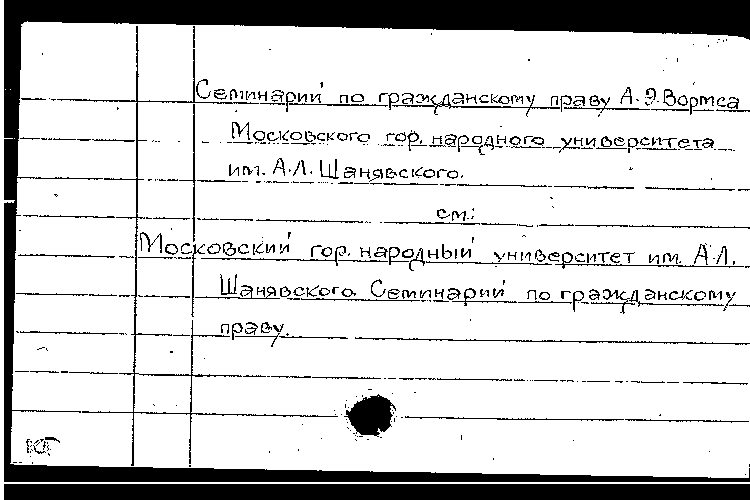 Семинарий по гражданскому праву А.Э.Вормса
Московского гор. народного университета
им. А.Л. Шанявского.
см.:
Московский гор. народный университет им. А.Л.
Шанявского. Семинарий по гражданскому
праву.